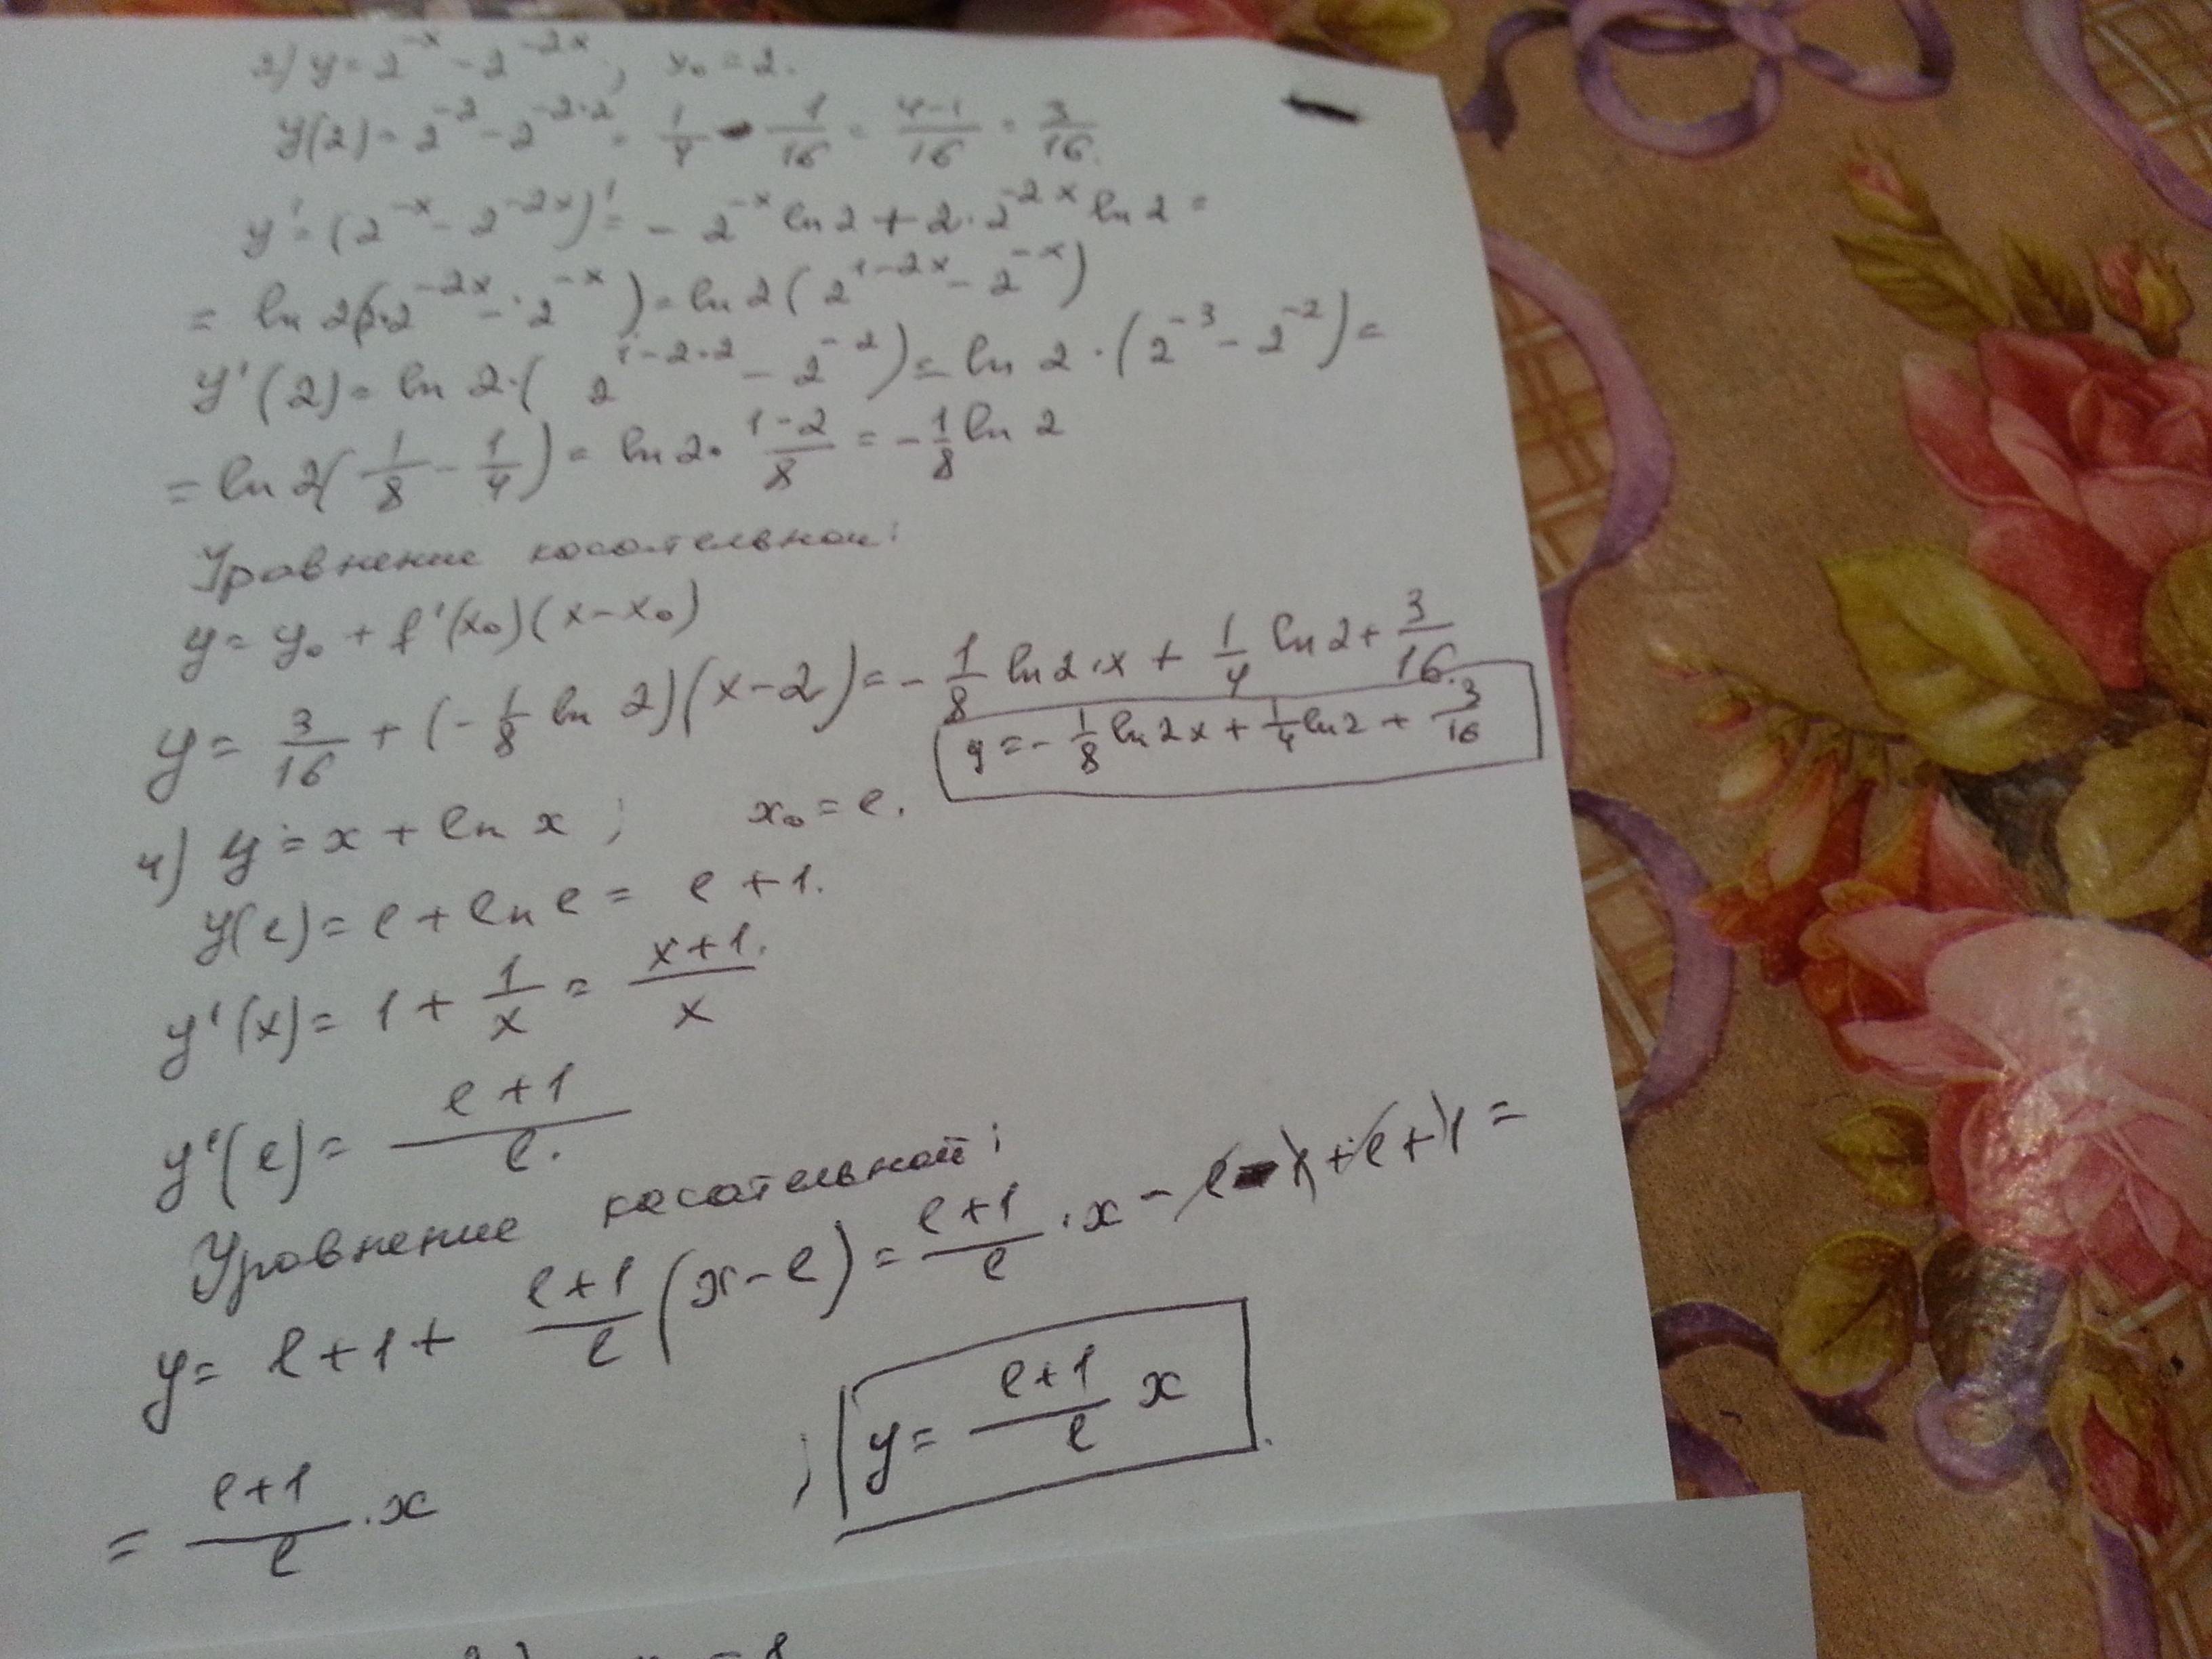 2) y = 2^{-x} - 2^{-2x}; x₀ = 2.
y(2) = 2^{-2} - 2^{-2·2} = 1/4 - 1/16 = (4-1)/16 = 3/16.
y' = (2^{-x} - 2^{-2x})' = - 2^{-x} ln 2 + 2·2^{-2x} ln 2 =
= ln 2(2·2^{-2x} - 2^{-x}) = ln 2 (2^{1-2x} - 2^{-x})
y'(2) = ln 2·(2^{1-2·2} - 2^{-2}) = ln 2·(2^{-3} - 2^{-2}) =
= ln 2(1/8 - 1/4) = ln 2· (1-2)/8 = -1/8 ln 2
Уравнение касательной:
y = y₀ + f'(x₀)(x-x₀)
y = 3/16 + (-1/8 ln 2)(x-2) = -1/8 ln 2·x + 1/4 ln 2 + 3/16.
y = -1/8 ln 2x + 1/4 ln 2 + 3/16
4) y = x + ln x; x₀ = e.
y(e) = e + ln e = e + 1.
y'(x) = 1 + 1/x = (x+1)/x
y'(e) = (e+1)/e.
Уравнение касательной:
y = e+1+ (e+1)/e (x-e) = (e+1)/e ·x - e - 1 + e + 1 =
= (e+1)/e ·x ; y = (e+1)/e x